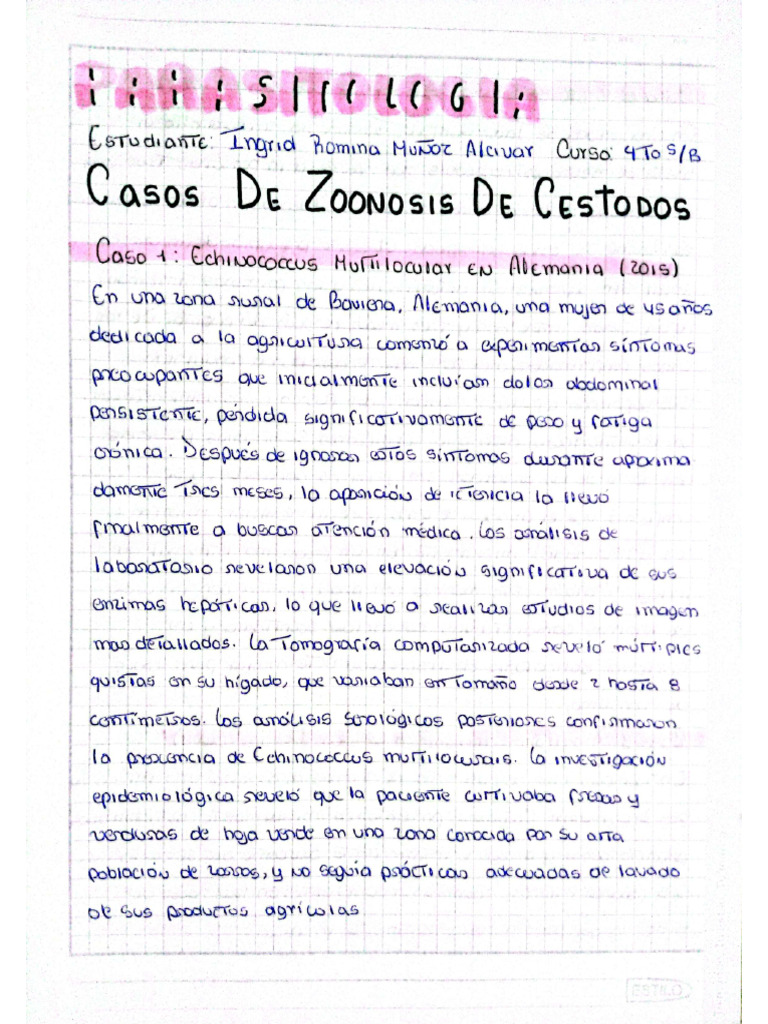 PARASITOLOGIA
Estudiante: Ingrid Romina Muñoz Alcivar Curso: 4to S/B
Casos De Zoonosis De Cestodos
Caso 1: Echinococcus Multilocular en Alemania (2015)
En una zona rural de Baviera, Alemania, una mujer de 45 años
dedicada a la agricultura comenzó a experimentar síntomas
preocupantes que inicialmente incluían dolor abdominal
persistente, pérdida significativamente de peso y fatiga
crónica. Después de ignorar estos síntomas durante aproxima
damente tres meses, la aparición de ictericia la llevó
finalmente a buscar atención médica. Los análisis de
laboratorio revelaron una elevación significativa de sus
enzimas hepáticas, lo que llevó a realizar estudios de imagen
mas detallados. La tomografía computarizada reveló múltiples
quistas en su hígado, que variaban en tamaño desde 2 hasta 8
centímetros. Los análisis serológicos posteriores confirmaron
la presencia de Echinococcus multilocurais. La investigación
epidemiológica reveló que la paciente cultivaba fresas y
verduras de hoja verde en una zona conocida por su alta
población de zorros, y no seguía prácticas adecuadas de lavado
de sus productos agrícolas
ESTILO